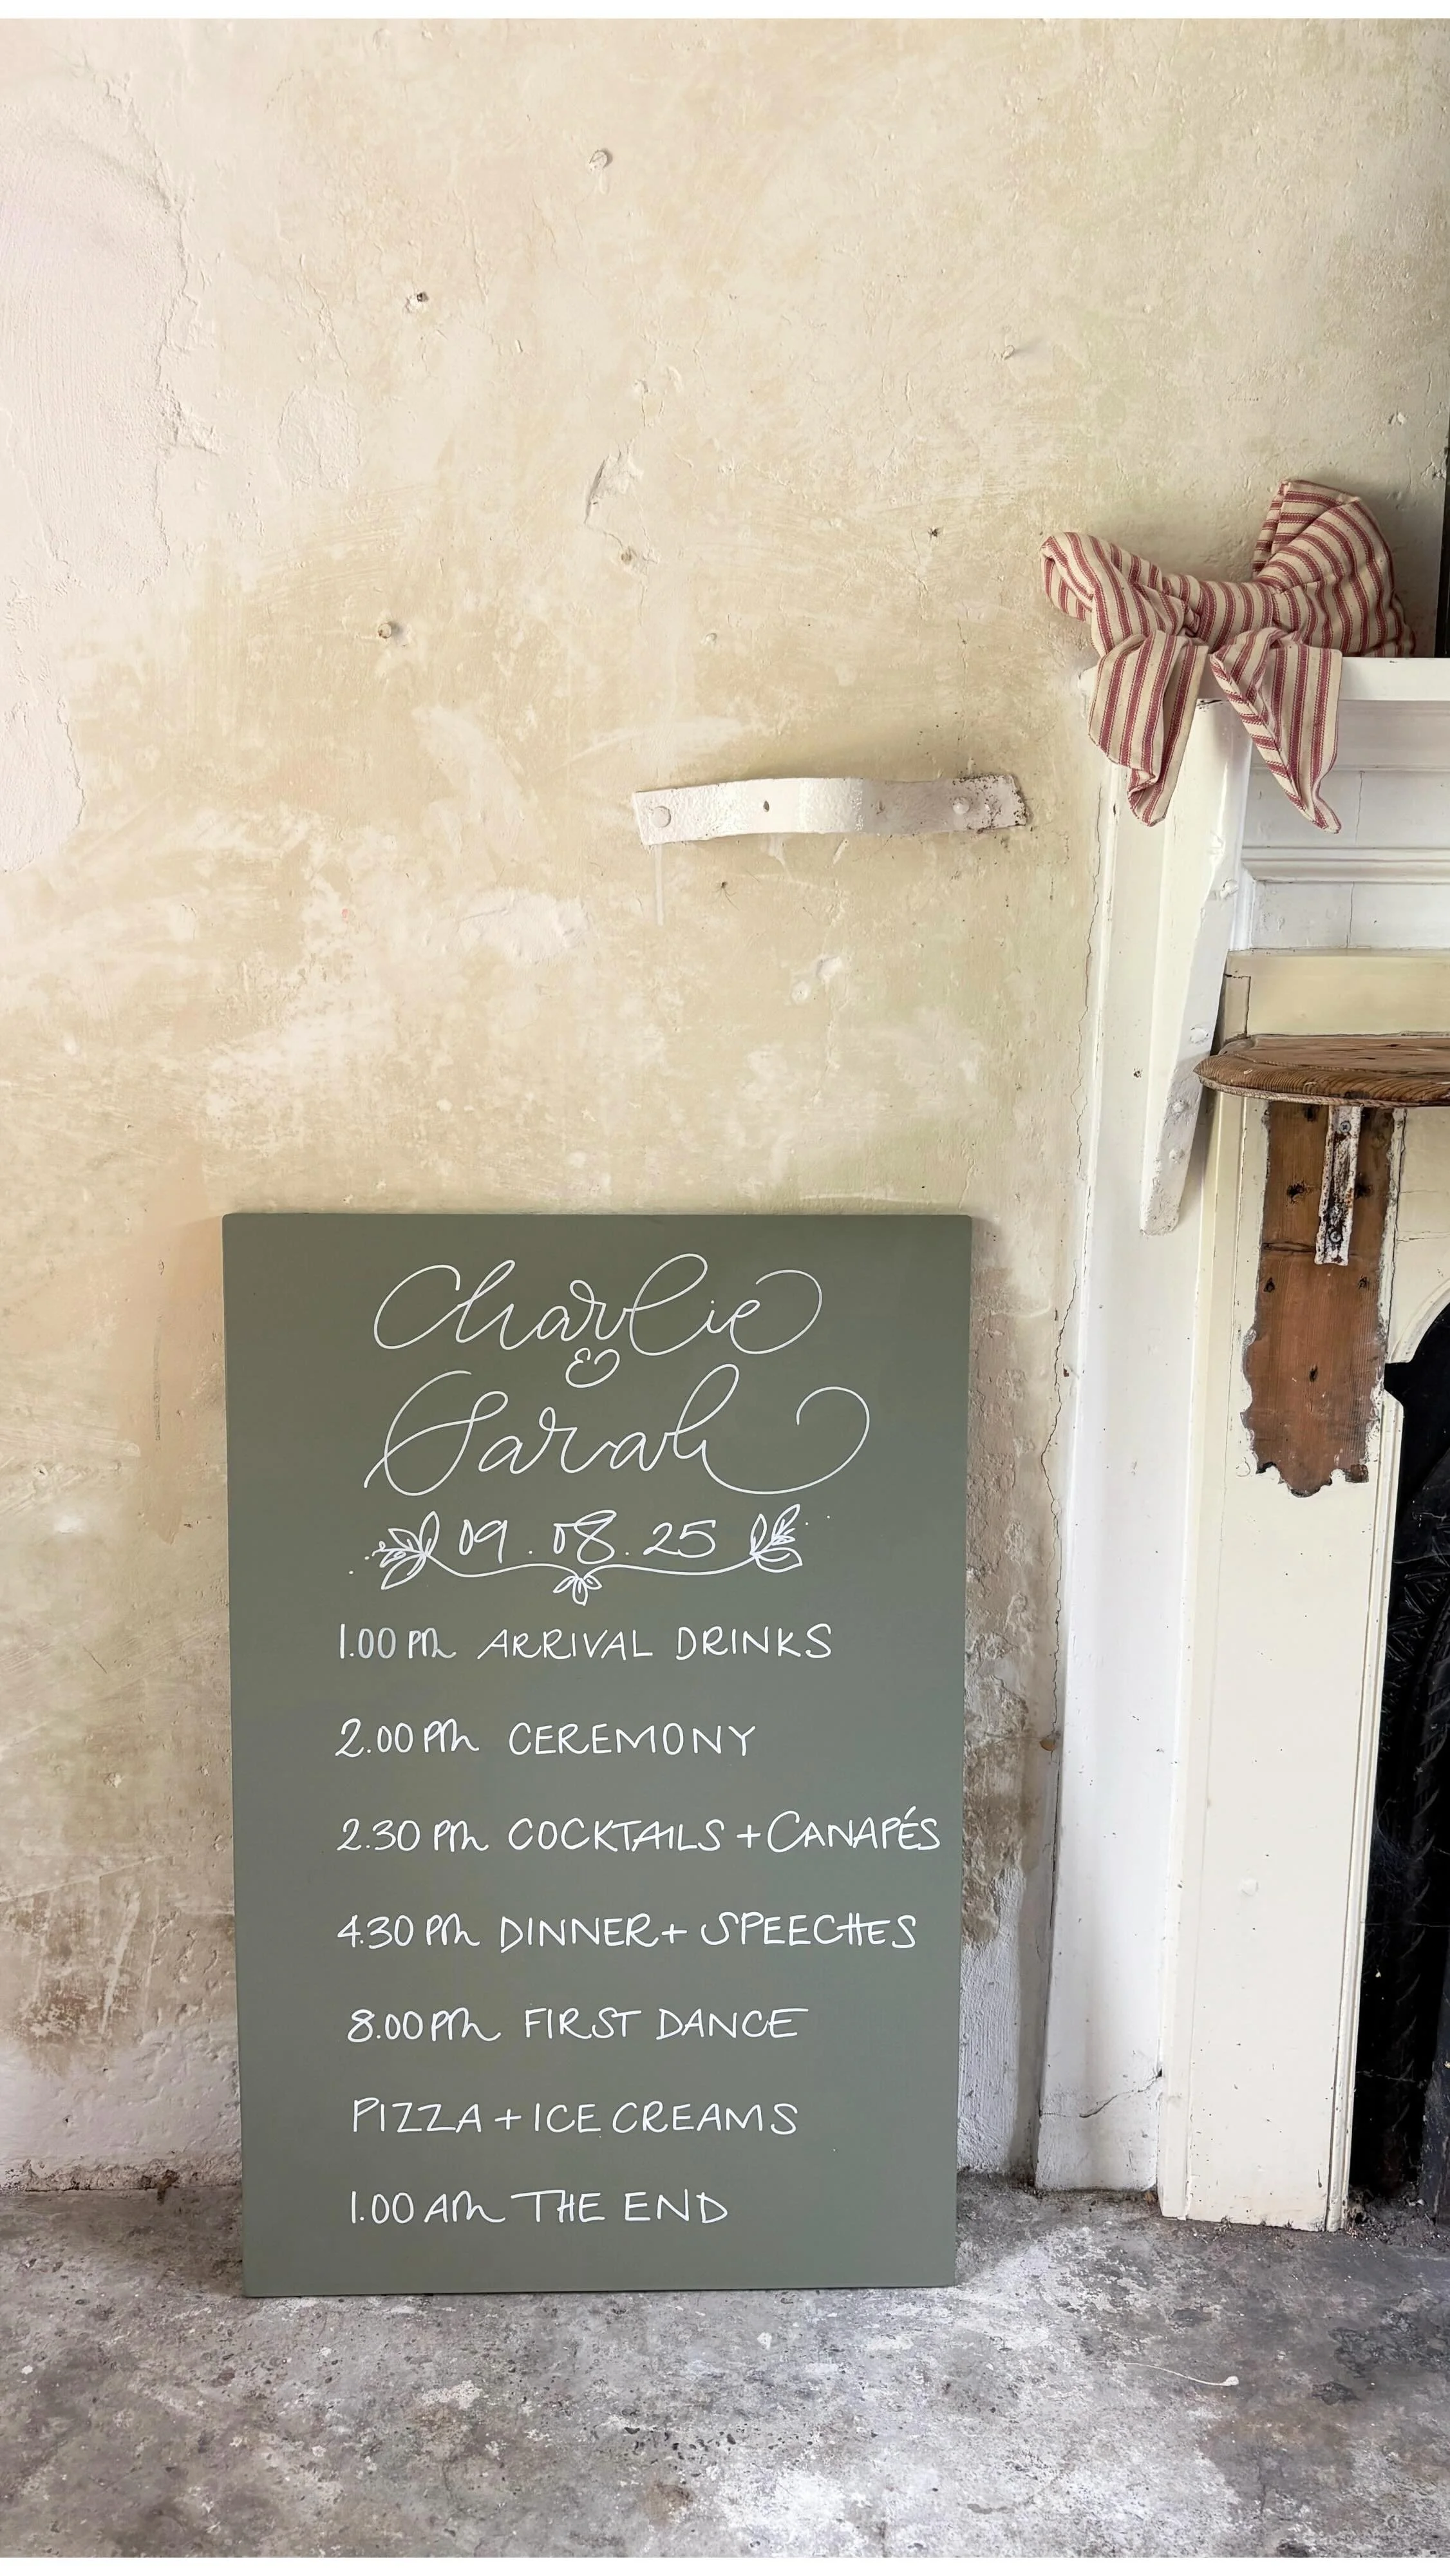 Charlie
&
Sarah
09.08.25
1.00 PM ARRIVAL DRINKS
2.00 PM CEREMONY
2.30 PM COCKTAILS + CANAPÉS
4.30 PM DINNER + SPEECHES
8.00 PM FIRST DANCE
PIZZA + ICE CREAMS
1.00 AM THE END